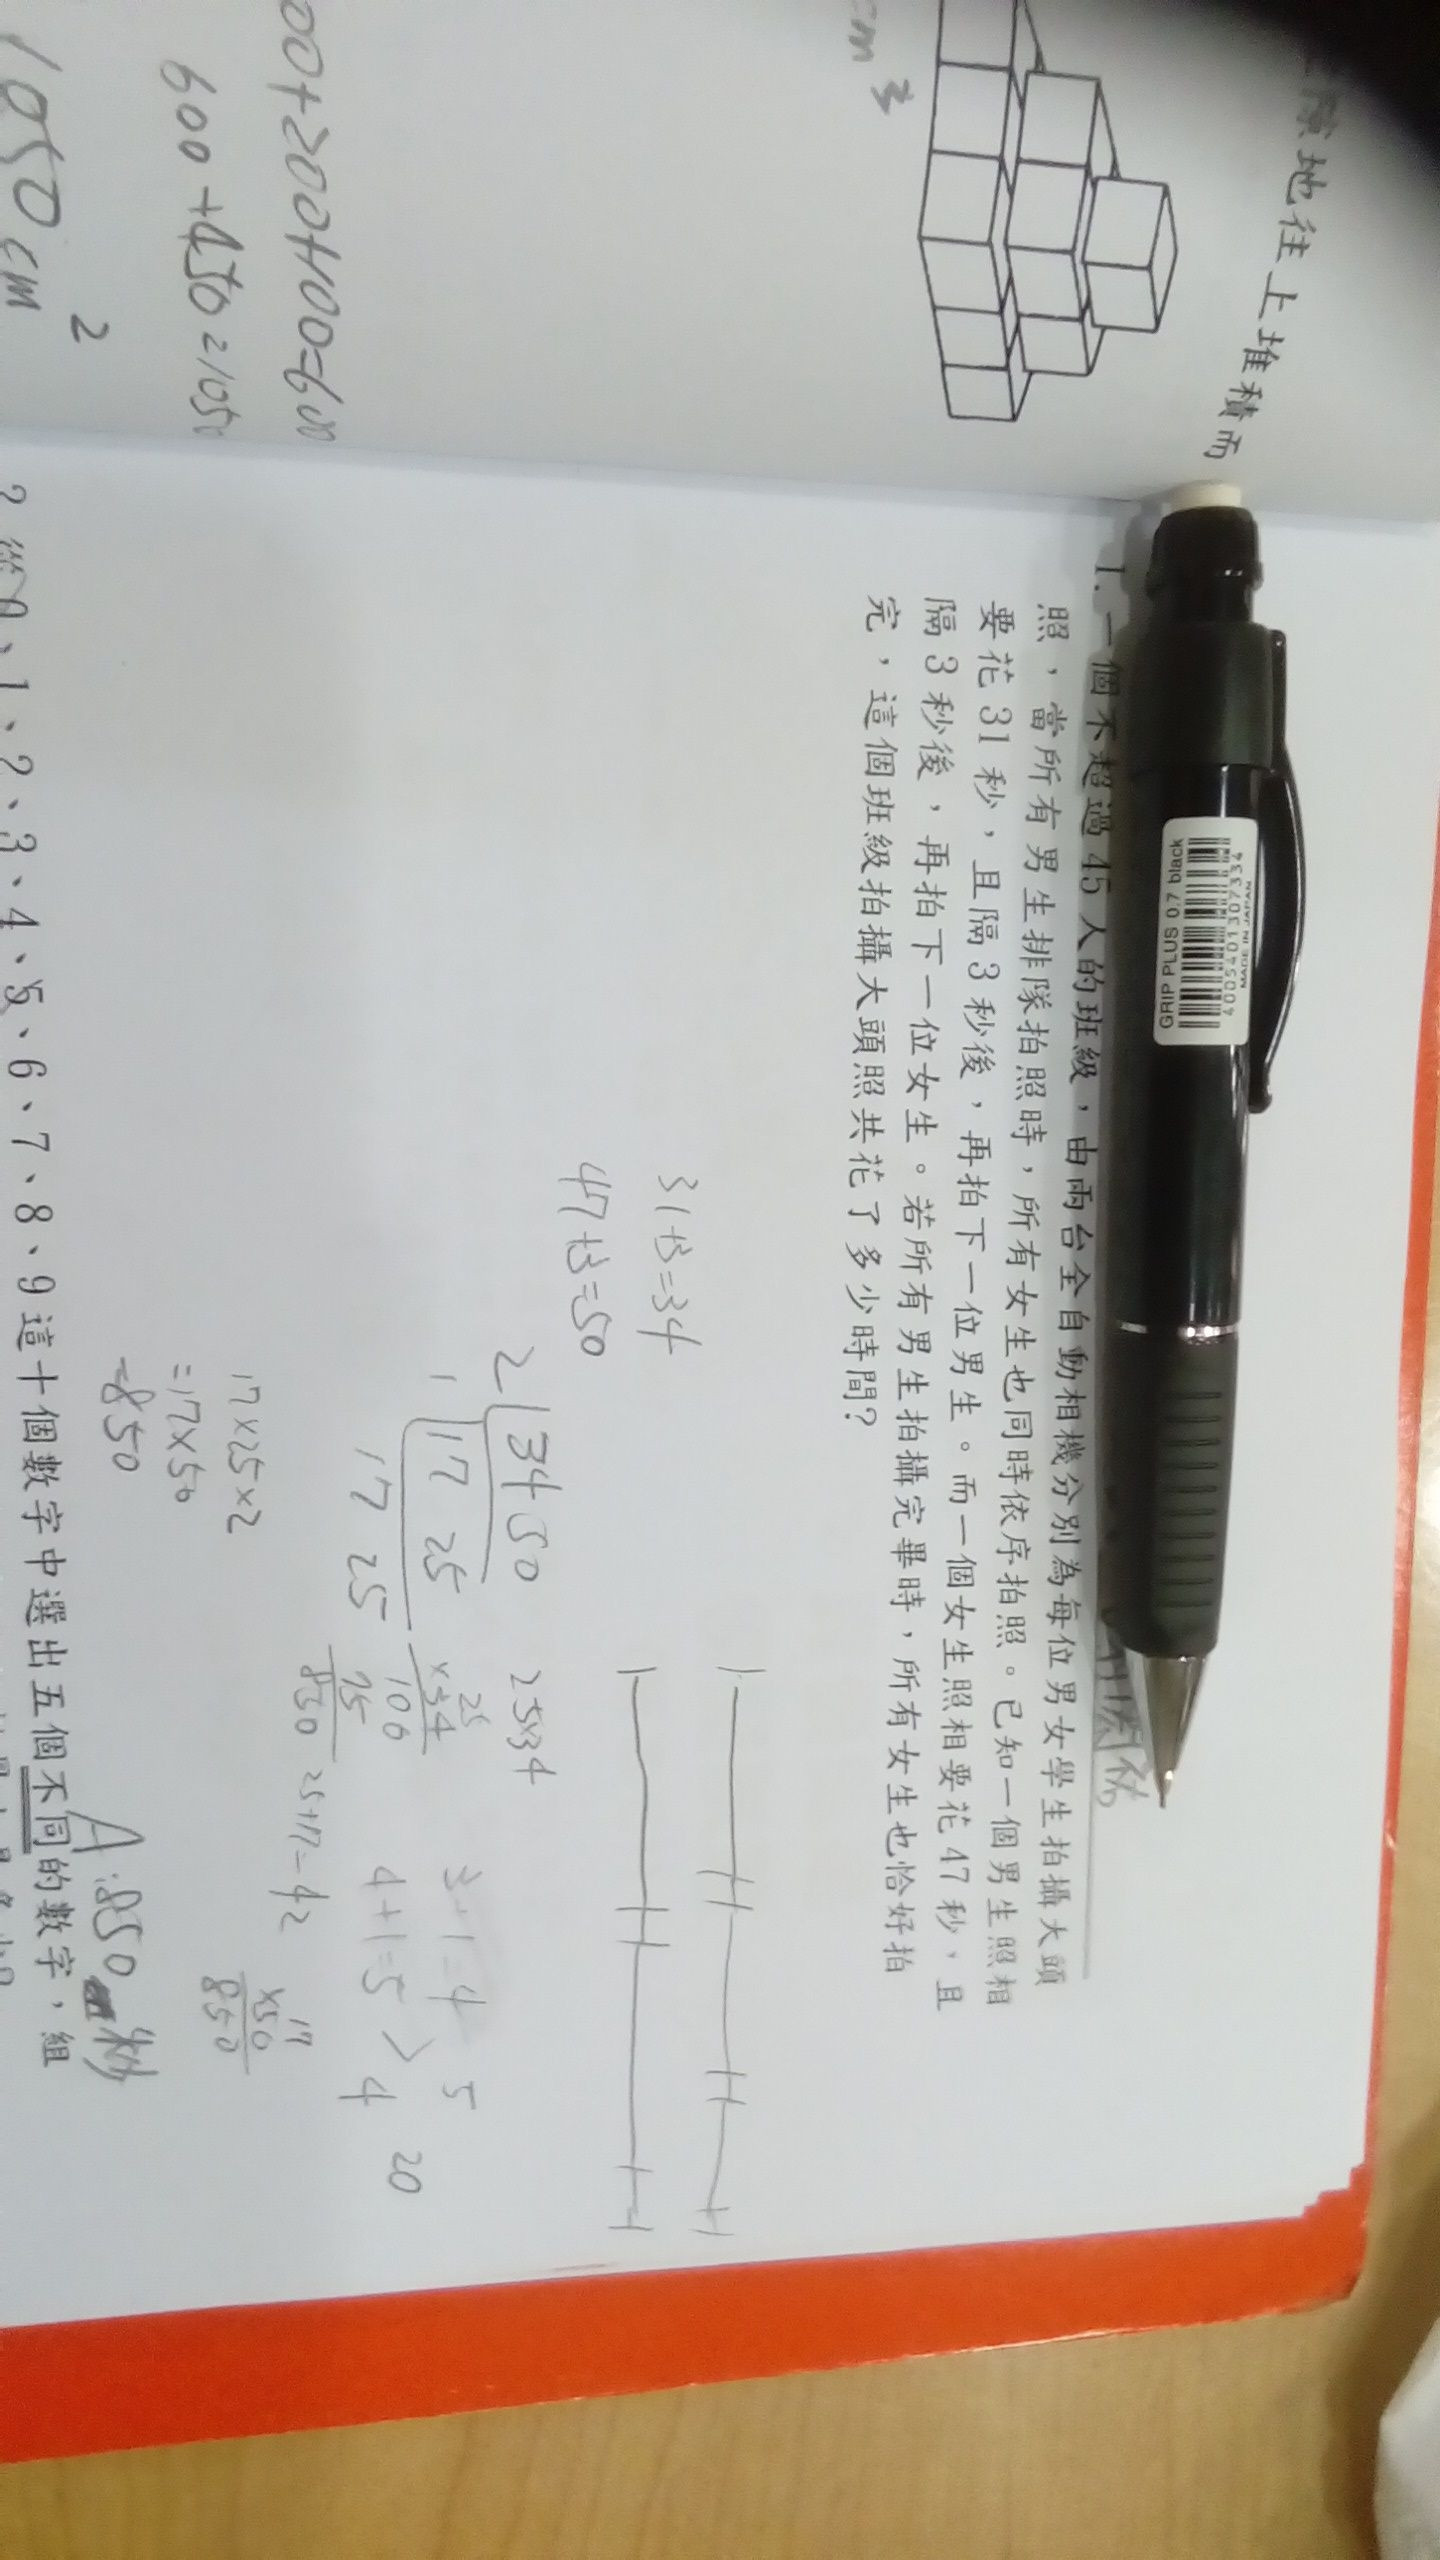 原地往上堆積而
cm³
00+200+100=600
600+450=1050
1050cm²
1. 一個不超過45人的班級，由兩台全自動相機分別為每位男女學生拍攝大頭
照，當所有男生排隊拍照時，所有女生也同時依序拍照。已知一個男生照相
要花31秒，且隔3秒後，再拍下一位男生。而一個女生照相要花47秒，且
隔3秒後，再拍下一位女生。若所有男生拍攝完畢時，所有女生也恰好拍
完，這個班級拍攝大頭照共花了多少時間？
31+3=34
47+3=50
2 34 50
1 17 25
17 25
25×34
25
×34
100
75
850
25+17=42
3+1=4
4+1=5
5
4
20
17×25×2
=17×50
=850
17
×50
850
A:850
秒
2 從0、1、2、3、4、5、6、7、8、9這十個數字中選出五個不同的數字，組
GRIP PLUS 0.7 black
MADE IN JAPAN